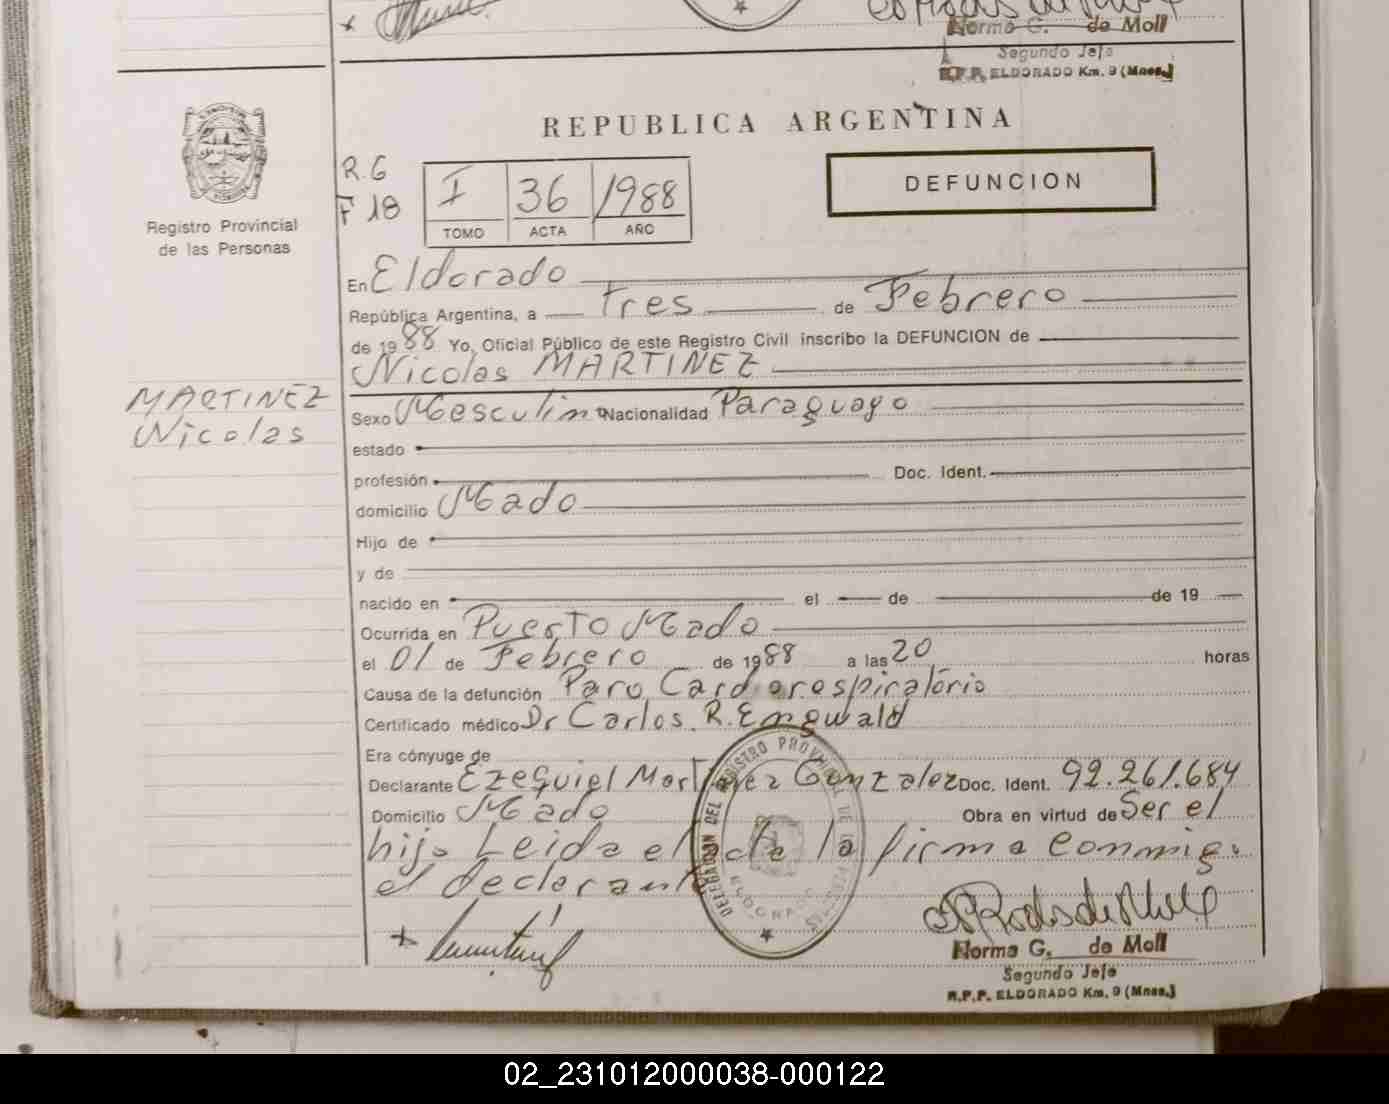 Norma G. de Moll
Segundo Jefe
R.P.P. ELDORADO Km. 9 (Mnes.)
REPUBLICA ARGENTINA
R.6
F 18
I 36 1988
TOMO ACTA AÑO
DEFUNCION
Registro Provincial
de las Personas
En Eldorado
República Argentina, a Tres de Febrero
de 1988 Yo, Oficial Público de este Registro Civil inscribo la DEFUNCION de
Nicolas MARTINEZ
MARTINEZ
Nicolas
Sexo Masculino Nacionalidad Paraguayo
estado
profesión Doc. Ident.
domicilio Mado
Hijo de
y de
nacido en el de de 19
Ocurrida en Puerto Mado
el 01 de Febrero de 1988 a las 20 horas
Causa de la defunción Paro Cardiorespiratório
Certificado médico Dr Carlos R. Engwald
Era cónyuge de
Declarante Ezequiel Martinez Gonzalez Doc. Ident. 92.261.684
Domicilio Mado Obra en virtud de Ser el
hijo Leida el acta la firma conmigo
el declarante
DELEGACION DEL REGISTRO PROVINCIAL DE LAS PERSONAS
ELDORADO
Norma G. de Moll
Segundo Jefe
R.P.P. ELDORADO Km. 9 (Mnes.)
02_231012000038-000122